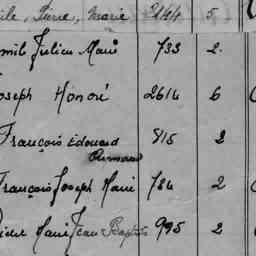 ile, Pierre, Marie 2144 5
mile Julien Marie 733 2
oseph Honoré 2614 6
François Edouard 815 2
Armand
François Joseph Marie 784 2
Pierre Marie Jean Baptiste 995 2